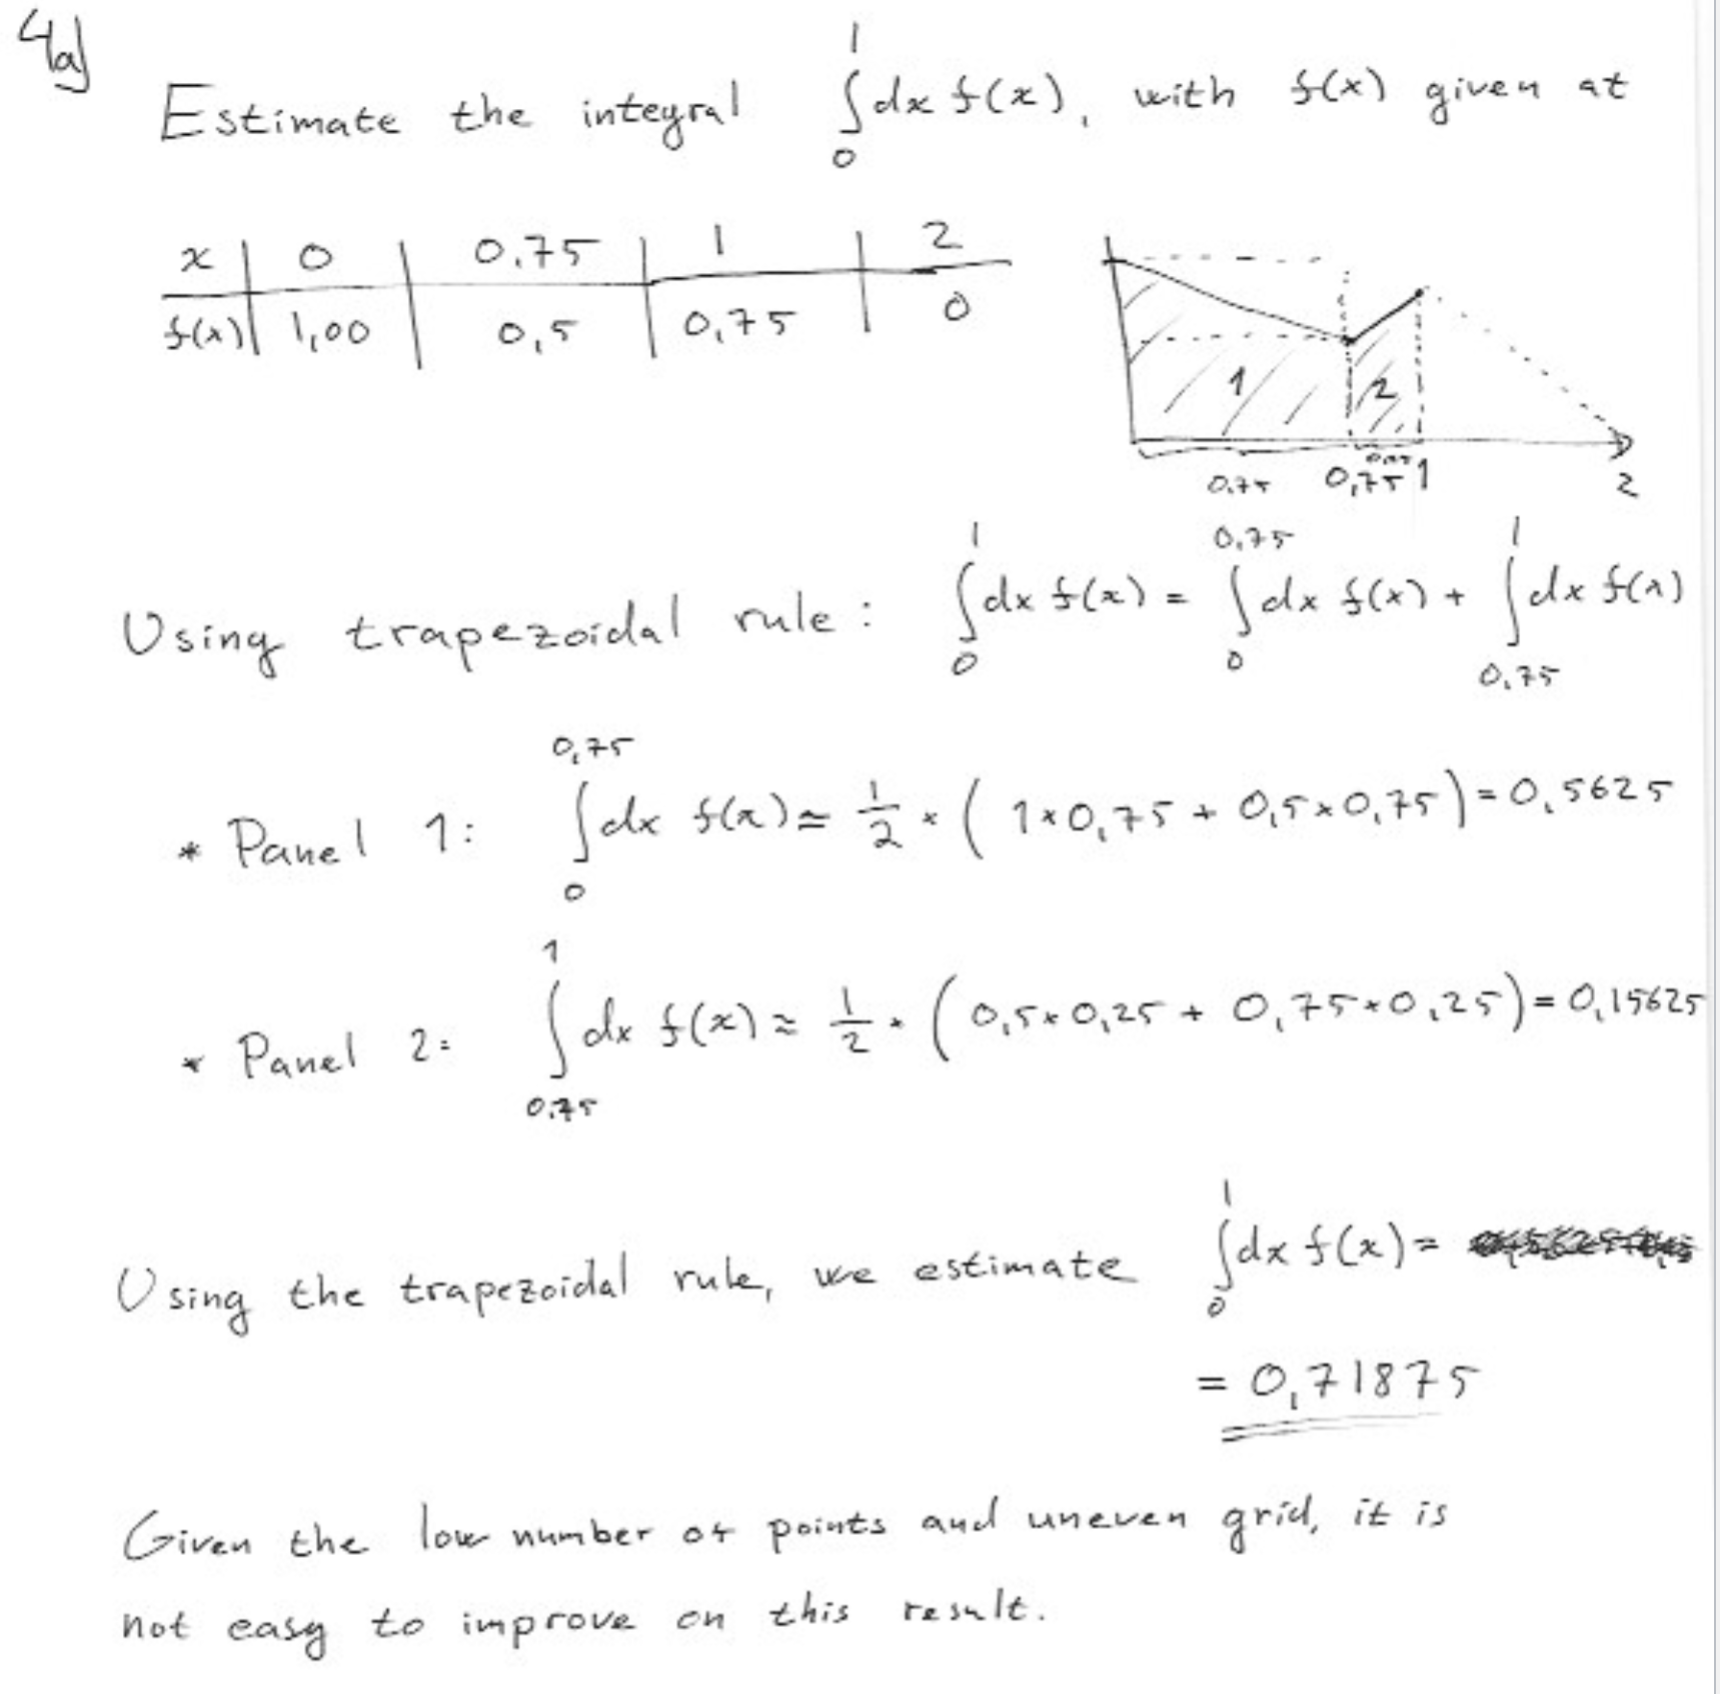 4a)
Estimate the integral ∫₀¹ dx f(x), with f(x) given at
x | 0 | 0.75 | 1 | 2
f(x) | 1,00 | 0,5 | 0,75 | 0
1 2
0.75 0,75 1 2
Using trapezoidal rule: ∫₀¹ dx f(x) = ∫₀^0,75 dx f(x) + ∫_0,75^1 dx f(x)
* Panel 1: ∫₀^0,75 dx f(x) ≃ 1/2 * ( 1*0,75 + 0,5*0,75 ) = 0,5625
* Panel 2: ∫_0.75^1 dx f(x) ≈ 1/2 * ( 0,5*0,25 + 0,75*0,25 ) = 0,15625
Using the trapezoidal rule, we estimate ∫₀¹ dx f(x) =
= 0,71875
Given the low number of points and uneven grid, it is
not easy to improve on this result.